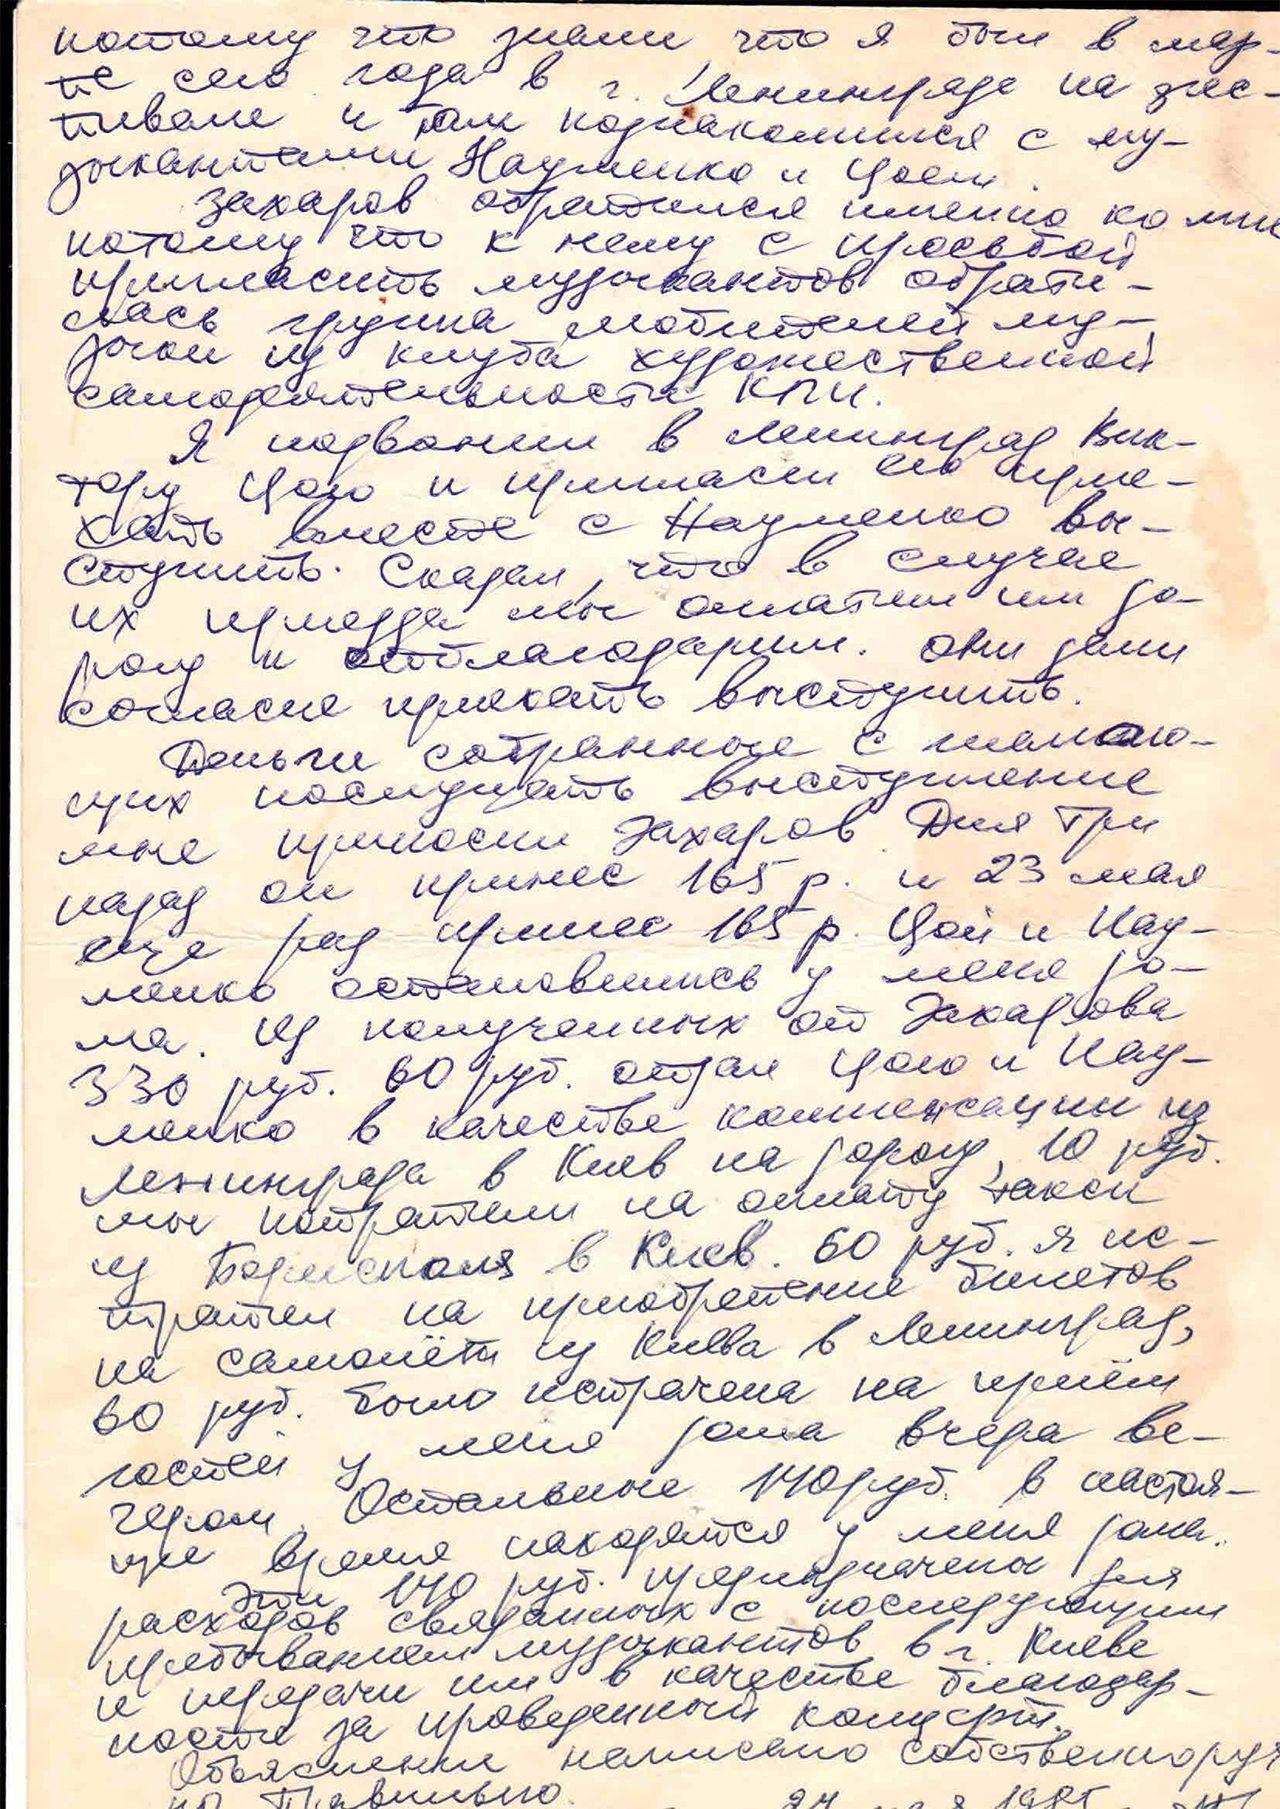 потому что знали что я был в мар-
те сего года в г. Ленинграде на фес-
тивале и там познакомился с му-
зыкантами Науменко и Цоем.
Захаров обратился именно ко мне
потому что к нему с просьбой
пригласить музыкантов обрати-
лась группа любителей му-
зыки из клуба художественной
самодеятельности КПИ.
Я позвонил в Ленинград Вик-
тору Цою и пригласил его прие-
хать вместе с Науменко вы-
ступить. Сказал, что в случае
их приезда мы оплатим им до-
рогу и отблагодарим. Они дали
согласие приехать выступить.
Деньги собранные с желаю-
щих послушать выступление
мне приносил Захаров. Дня три
назад он принес 165 р. и 23 мая
еще раз принес 165 р. Цой и Нау-
менко остановились у меня до-
ма. Из полученных от Захарова
330 руб. 60 руб. отдал Цою и Нау-
менко в качестве компенсации из
Ленинграда в Киев на дорогу, 10 руб.
мы потратили на оплату такси
из Борисполя в Киев. 60 руб. я ис-
тратил на приобретение билетов
на самолёт из Киева в Ленинград,
60 руб. было истрачена на приём
гостей у меня дома вчера ве-
чером. Остальные 140 руб. в настоя-
щее время находятся у меня дома.
Эти 140 руб. предназначены для
расходов связанных с последующим
пребыванием музыкантов в г. Киеве
и передачи им в качестве благодар-
ности за проведенный концерт.
Объяснение написано собственнору
но. Правильно.
24 мая 1985